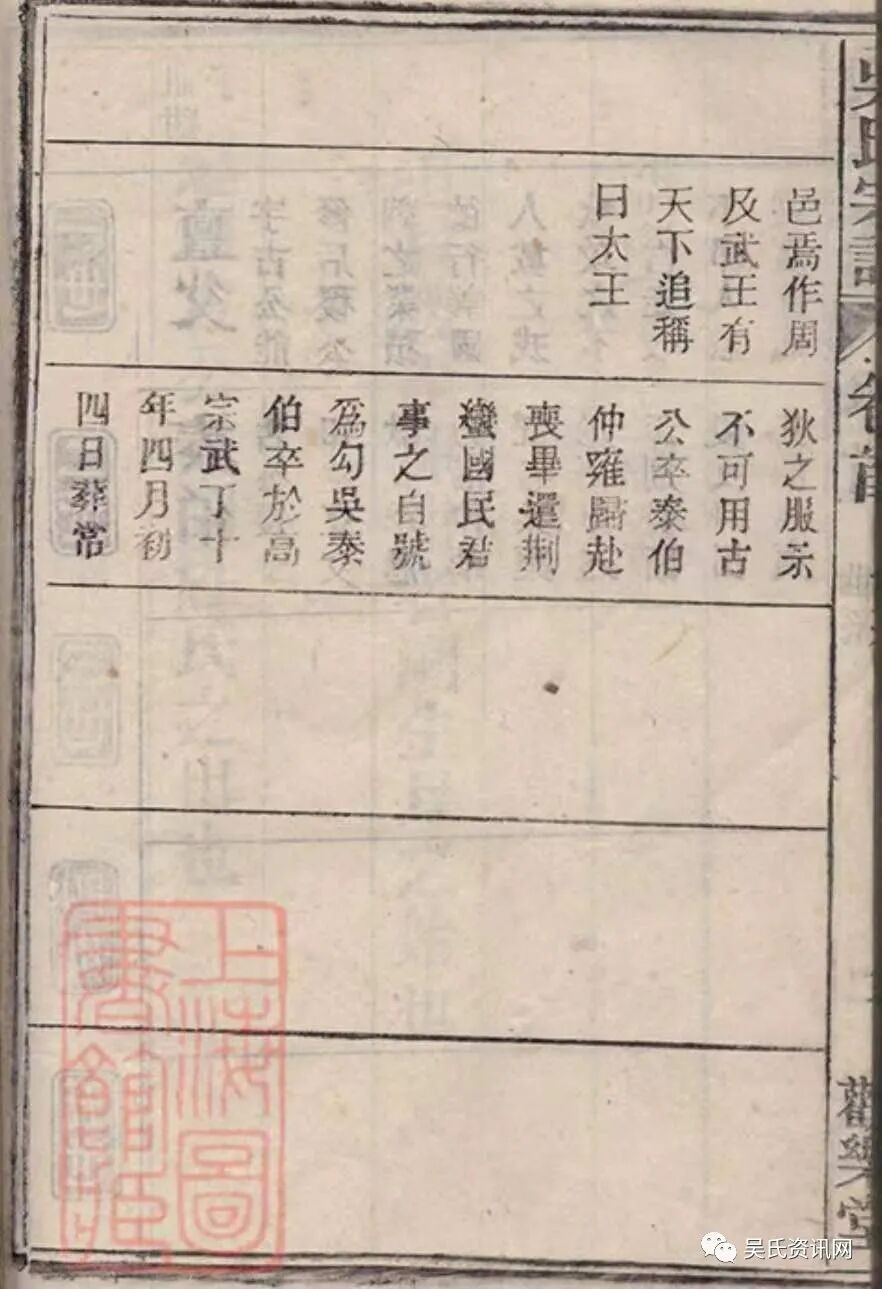 吳氏宗譜
卷首
觀樂堂
邑焉作周
及武王有
天下追稱
曰太王
狄之服示
不可用古
公卒泰伯
仲雍歸赴
喪畢還荆
蠻國民君
事之自號
爲勾吳泰
伯卒於高
宗武丁十
年四月初
四日葬常
上海圖
書館藏
吴氏资讯网